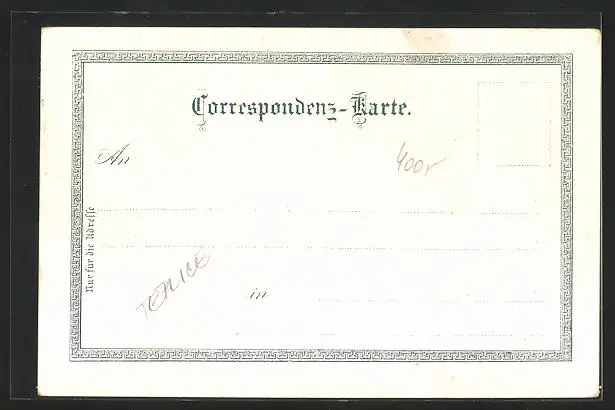 Correspondenz-Karte.
An
400,-
Nur für die Adresse
in